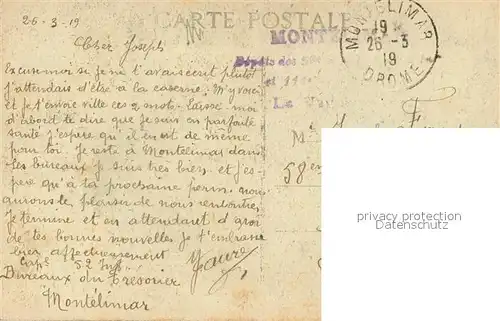 26-3-19
CARTE POSTALE
Cher Joseph
Excuse moi si je ne t'avais écrit plutôt
J'attendais d'être à la caserne. M'y voici
et je t'envoie vite ces 2 mots. Laisse-moi
d'abord te dire que je suis en parfaite
santé j'espère qu'il en est de même
pour toi. Je reste à Montélimar dans
les bureaux je suis très bien et j'es-
père qu'à ta prochaine perm. nous
aurons le plaisir de nous rencontrer
Je termine et en attendant
de tes bonnes nouvelles je t'embrasse
bien affectueusement
Faure
52 Inf
Bureaux du Trésorier
Montélimar
MONTÉLIMAR
19
26-3
19
DROME
MONT
Dépôts des
et
Le
M
58 em
property protection
SAMMLER.COM